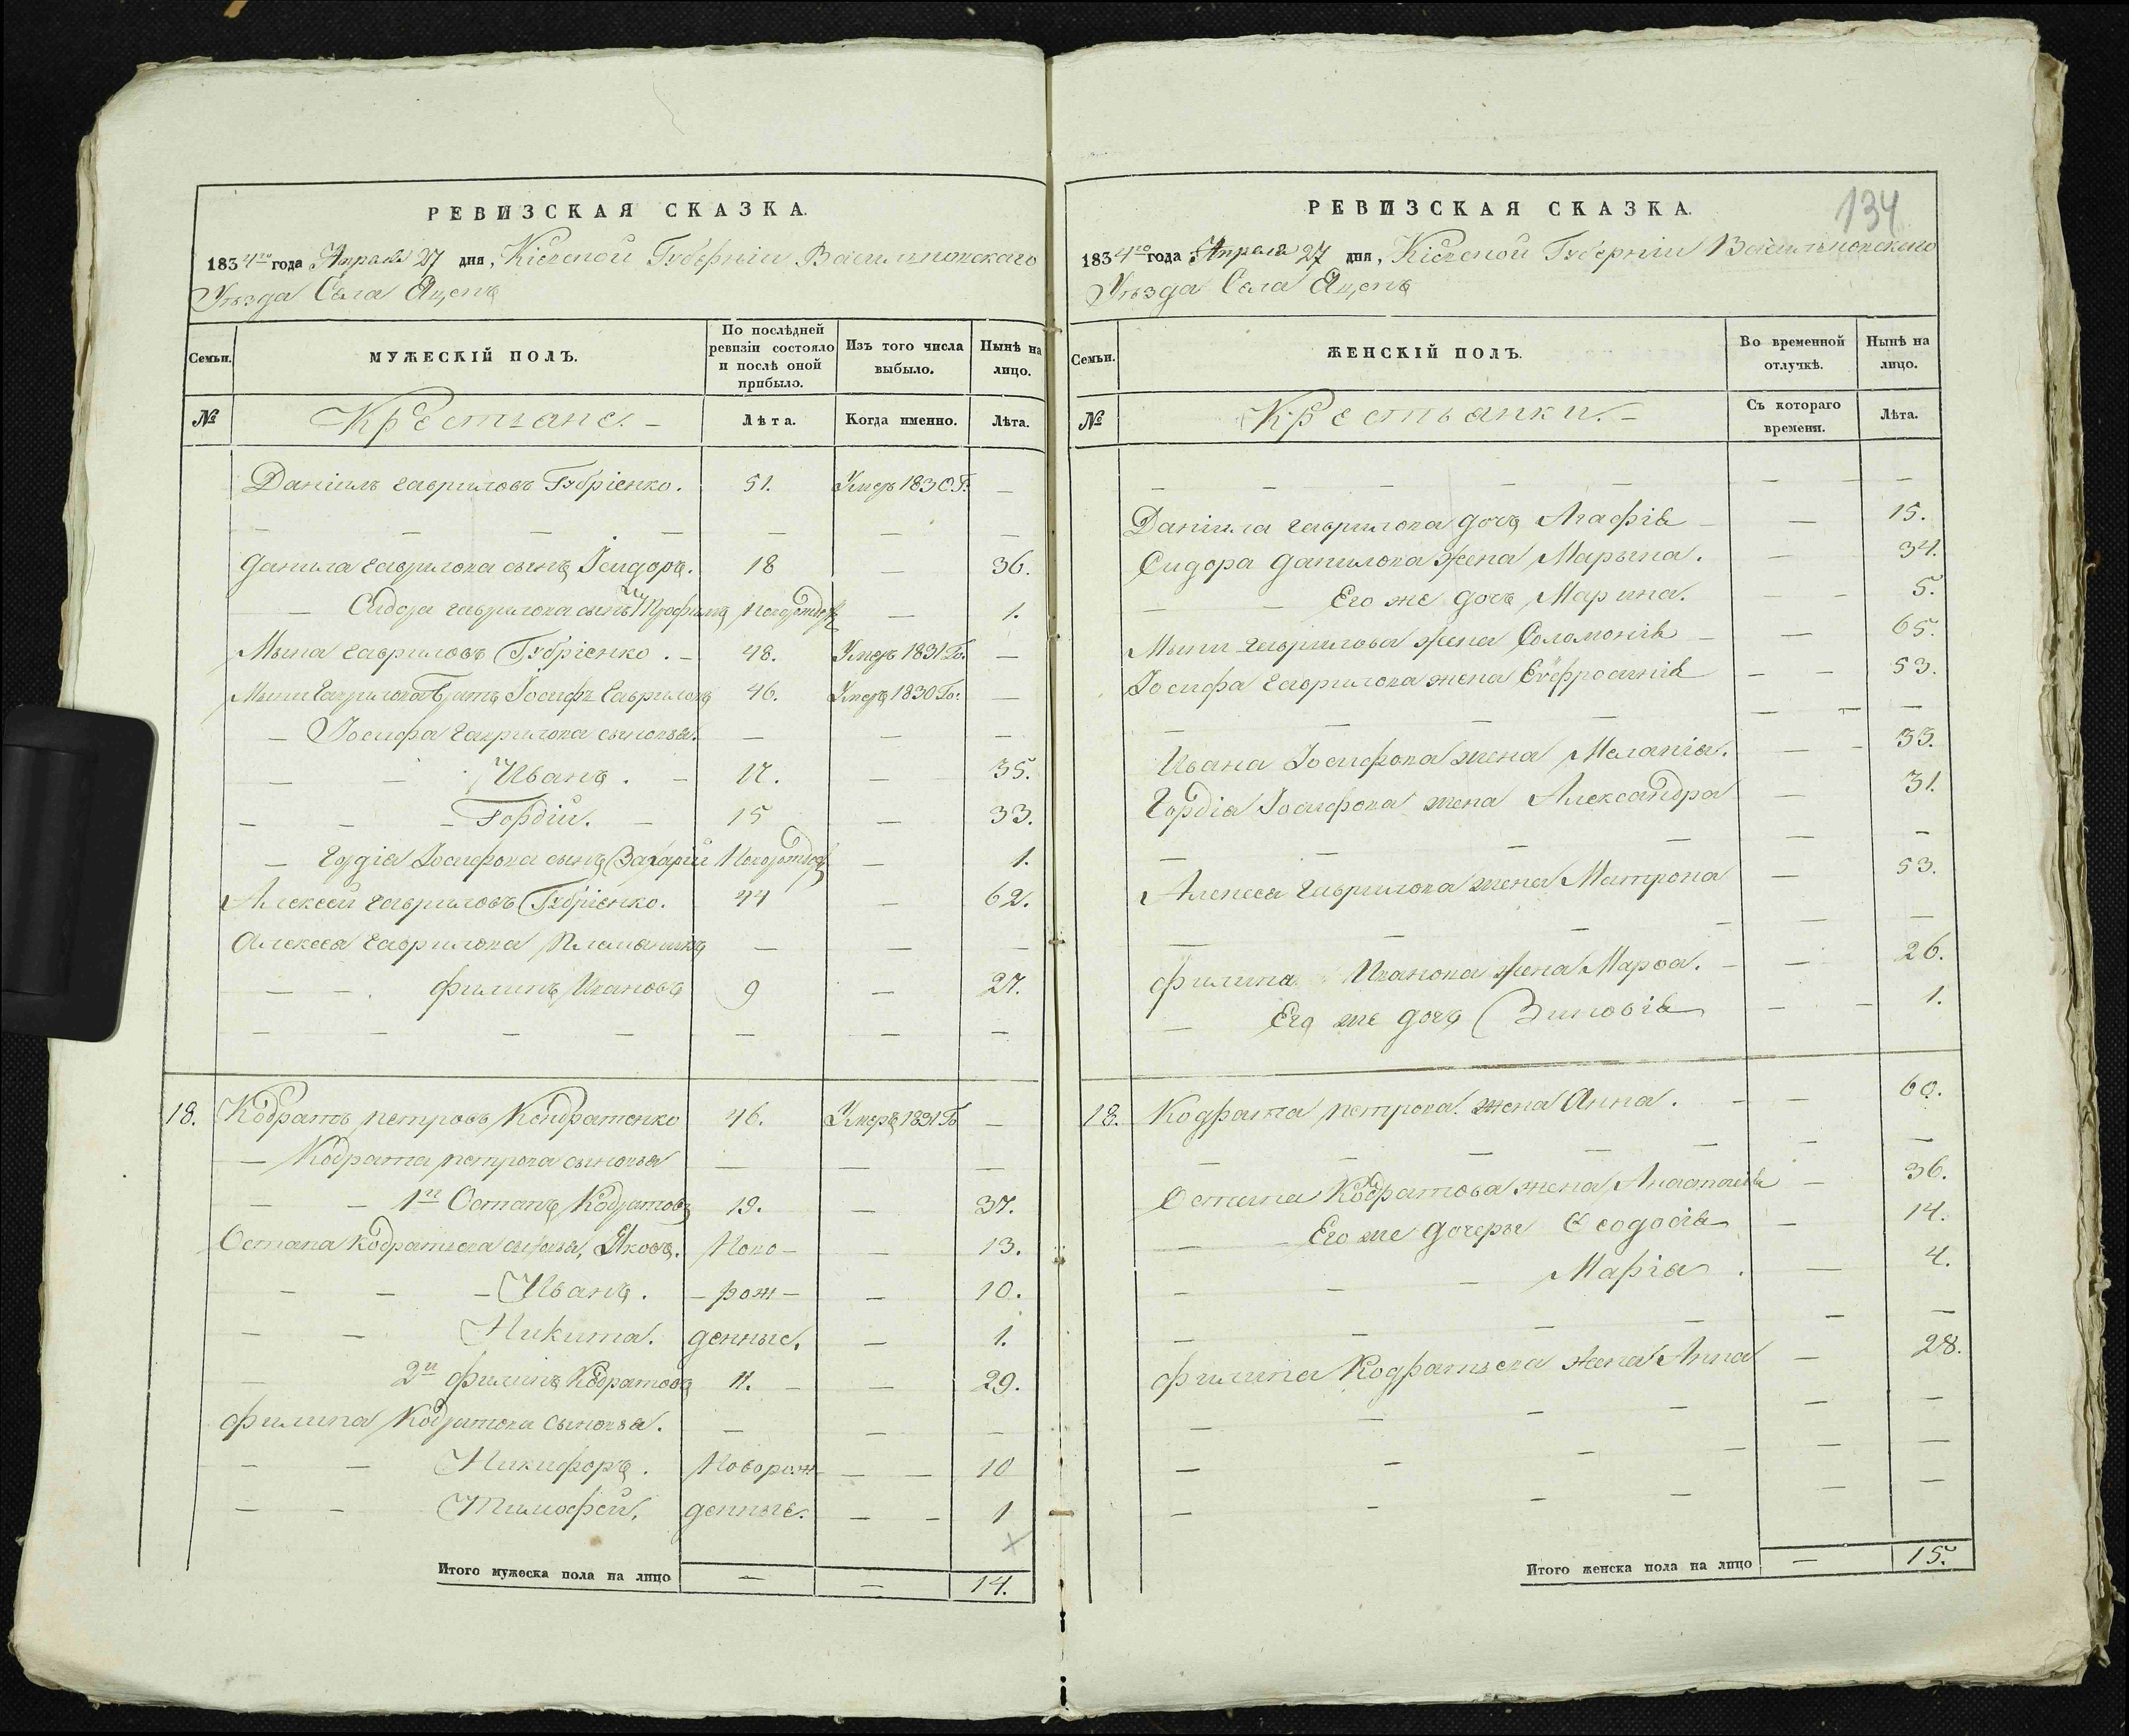 РЕВИЗСКАЯ СКАЗКА.
1834го года Апреля 27 дня, Кіевской Губерніи Васильковскаго
Уѣзда Села Яцекъ
Семьи.
МУЖЕСКІЙ ПОЛЪ.
По послѣдней ревизіи состояло и послѣ оной прибыло.
Изъ того числа выбыло.
Нынѣ на лицо.
№ Крестьяне. Лѣта. Когда именно. Лѣта.
Даніилъ Гавриловъ Губріенко. 51. Умеръ 1830 Г. —
Данила Гаврилова сынъ Ісидоръ. 18 — 36.
— Сидора Гаврилова сынъ Трофимъ — 1.
Мына Гавриловъ Губріенко. — 48. Умеръ 1831 Го. —
Мыни Гаврилова братъ Іосифъ Гавриловъ 46. Умеръ 1830 Го. —
— Іосифа Гаврилова сыновья. — — —
— — Иванъ. — 17. — 35.
— — — Гордій. — 15 — 33.
— Гордія Іосифова сынъ Захарій Новорожденъ — 1.
Алексей Гавриловъ Губріенко. 44 — 62.
Алексея Гаврилова племянникъ — — —
— — Филипъ Ивановъ 9 — 27.
18. Кодратъ Петровъ Кондратенко 46. Умеръ 1831 Го —
— Кодрата Петрова сыновья — — —
— — 1й Остапъ Кодратовъ 19. — 37.
Остапа Кодратьева сыновья, Яковъ. Ново- — 13.
— — — Иванъ. — рож — — 10.
— — Никита. денные. — 1.
— 2й Филипъ Кодратовъ 11. — — 29.
Филипа Кодратова сыновья. — — —
— — Никифоръ. Новорож — — 10
— — Тимофей. денные. — — 1
Итого мужеска пола на лицо — — 14.
134
РЕВИЗСКАЯ СКАЗКА.
1834го года Апреля 27 дня, Кіевской Губерніи Васильковскаго
Уѣзда Села Яцекъ
Семьи.
ЖЕНСКІЙ ПОЛЪ.
Во временной отлучкѣ.
Нынѣ на лицо.
№ Крестьянки. — Съ котораго времени. Лѣта.
Даніила Гаврилова дочь Агафія — — 15.
Сидора Данилова жена Марына. — 34.
— — Его же дочь Марина. — — 5.
Мыни Гаврилова жена Соломонія — — 65.
Іосифа Гаврилова жена Еуфросинія — — 53.
Ивана Іосифова жена Меланія. — — 33.
Гордія Іосифова жена Александра — 31.
Алексея Гаврилова жена Матрона — 53.
Филипа Иванова жена Марѳа. — — 26.
— Его же дочь Зиновія — — 1.
18. Кодрата Петрова жена Анна. — — 60.
Остапа Кодратова жена Анастасія — 36.
— — Его же дочеры Ѳеодосія — 14.
— — — Марія. — 4.
Филипа Кодратьева жена Анна — 28.
Итого женска пола на лицо — 15.